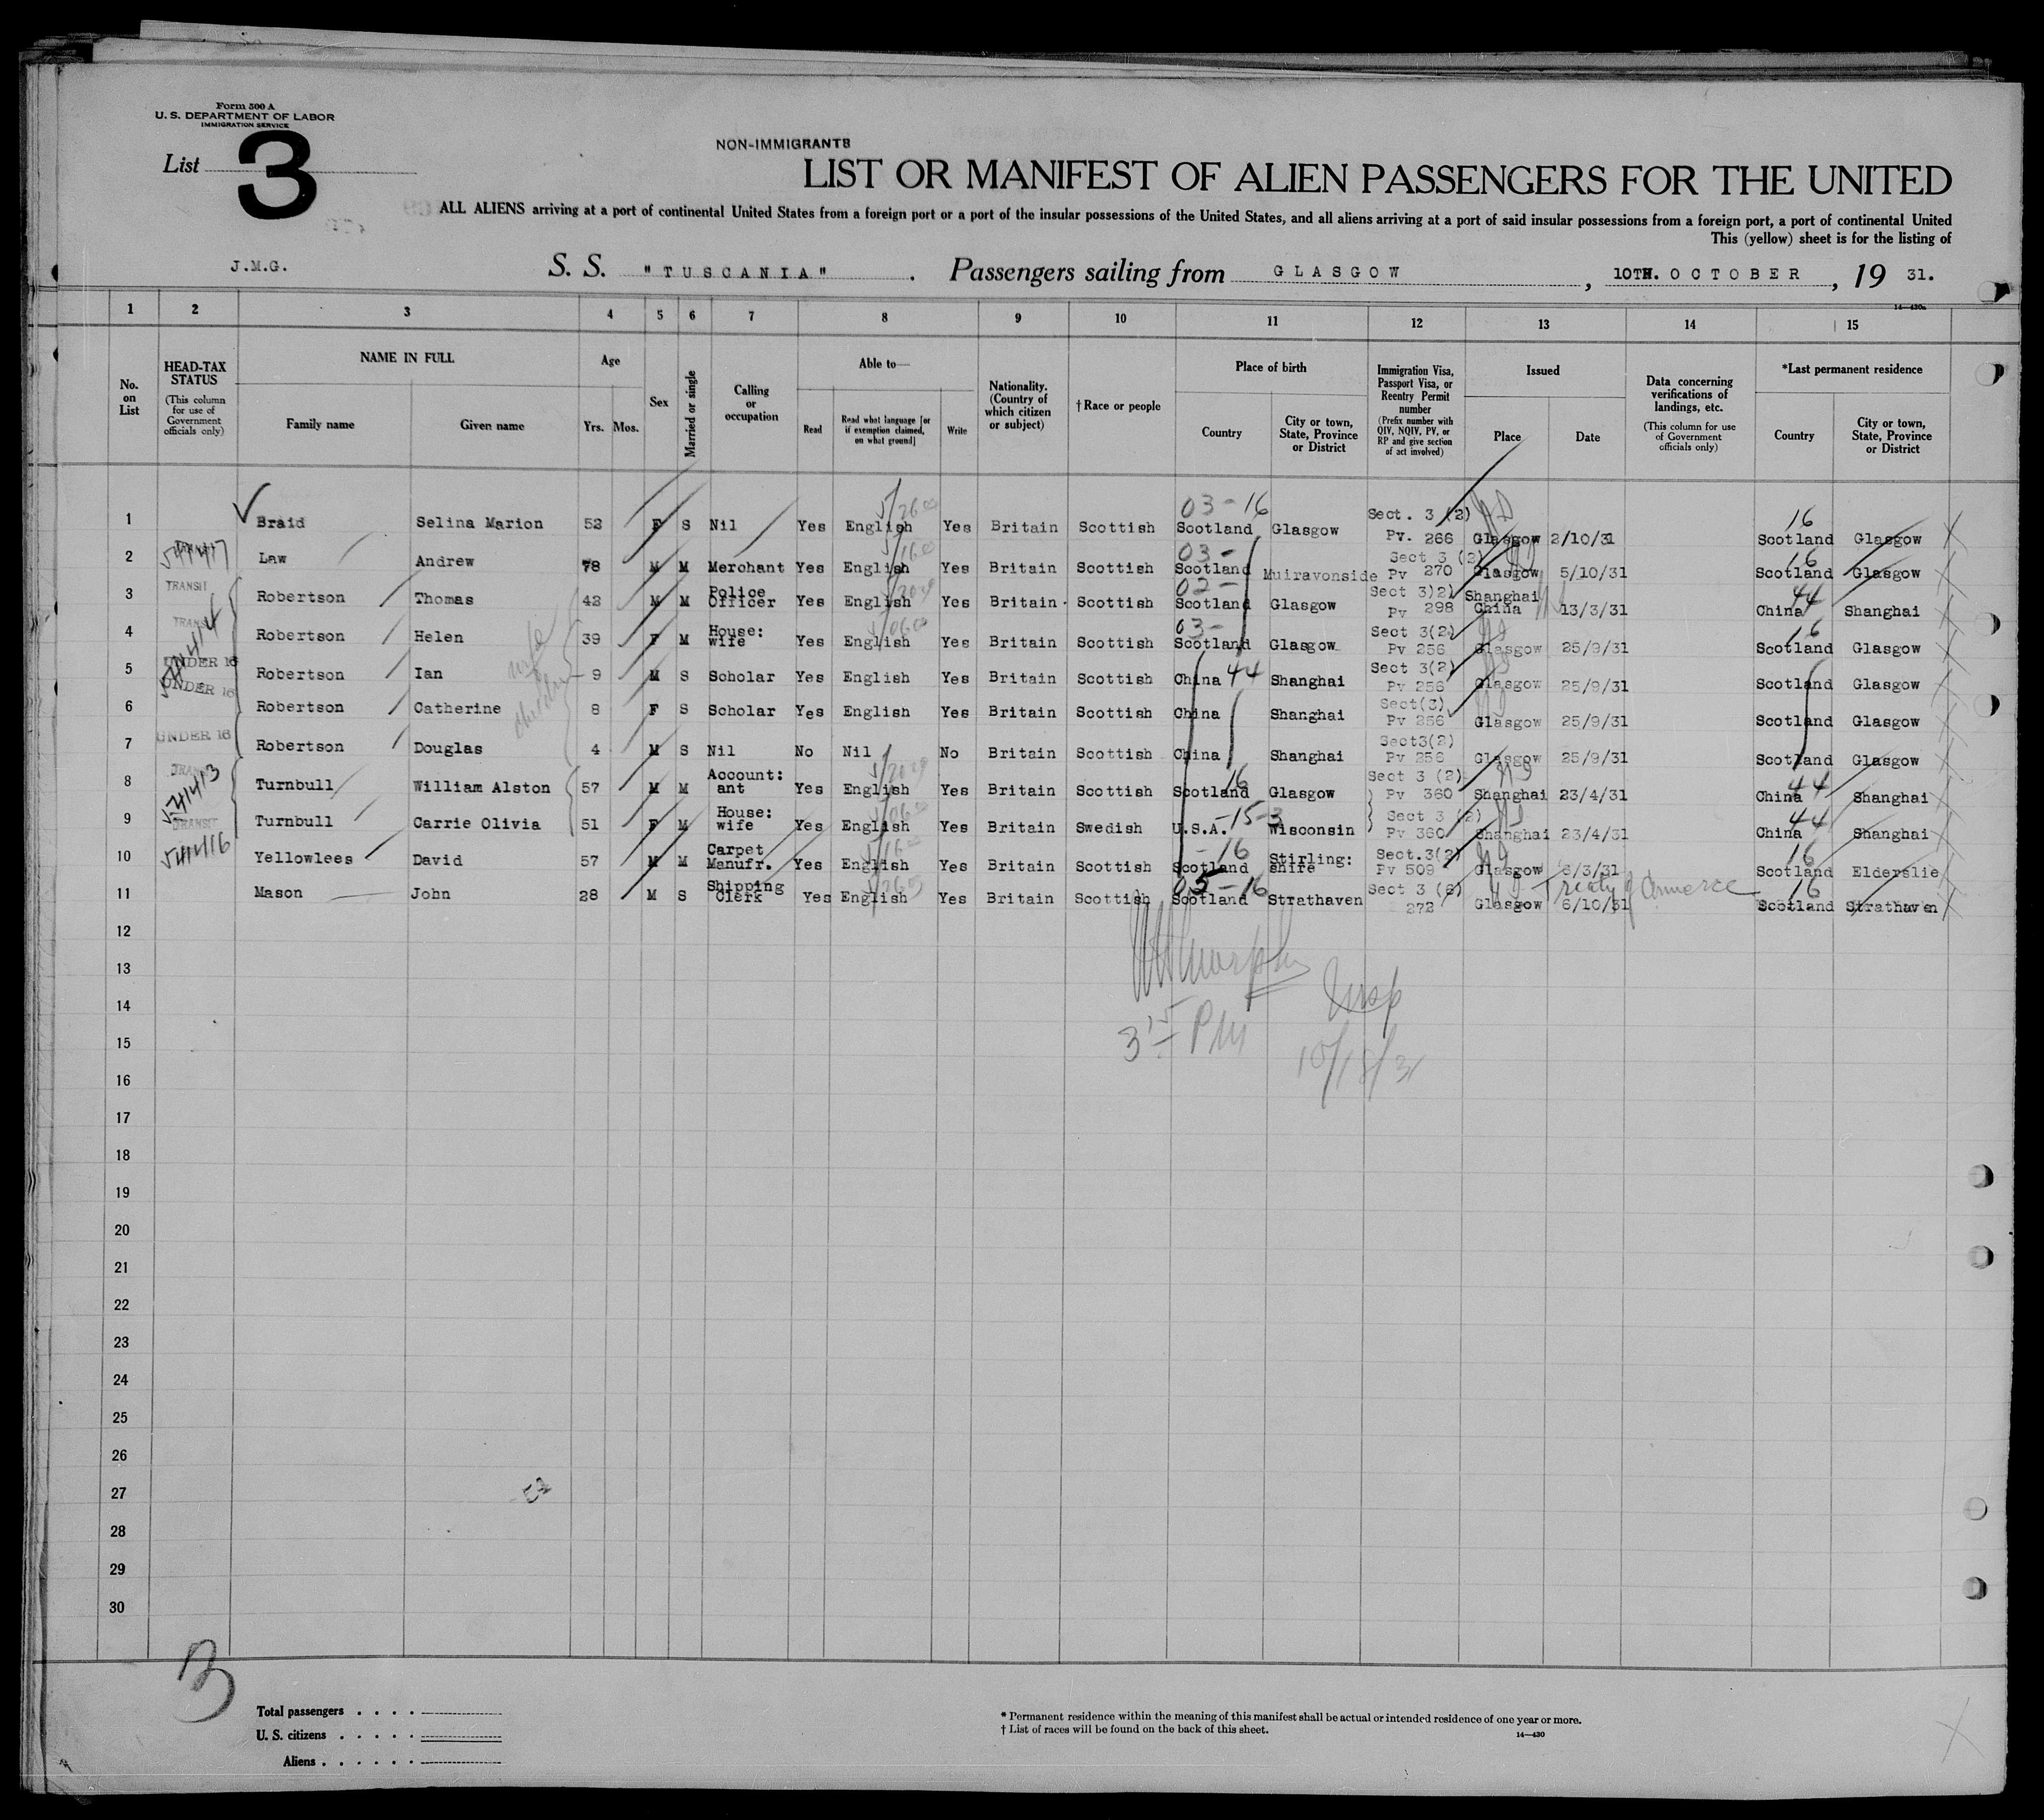 Form 500 A
U. S. DEPARTMENT OF LABOR
IMMIGRATION SERVICE
List 3
NON-IMMIGRANTS
LIST OR MANIFEST OF ALIEN PASSENGERS FOR THE UNITED
ALL ALIENS arriving at a port of continental United States from a foreign port or a port of the insular possessions of the United States, and all aliens arriving at a port of said insular possessions from a foreign port, a port of continental United
This (yellow) sheet is for the listing of
J.M.G. S. S. "TUSCANIA" . Passengers sailing from GLASGOW , 10TH. OCTOBER , 19 31.
14—430a
1 2 3 4 5 6 7 8 9 10 11 12 13 14 15
No. on List
HEAD-TAX STATUS (This column for use of Government officials only)
NAME IN FULL
Family name Given name
Age
Yrs. Mos.
Sex
Married or single
Calling or occupation
Able to—
Read Read what language [or if exemption claimed, on what ground] Write
Nationality. (Country of which citizen or subject)
† Race or people
Place of birth
Country City or town, State, Province or District
Immigration Visa, Passport Visa, or Reentry Permit number (Prefix number with QIV, NQIV, PV, or RP and give section of act involved)
Issued
Place Date
Data concerning verifications of landings, etc. (This column for use of Government officials only)
*Last permanent residence
Country City or town, State, Province or District
03-16 16
1 Braid Selina Marion 53 F S Nil Yes English Yes Britain Scottish Scotland Glasgow Sect. 3 (2) Pv. 266 Glasgow 2/10/31 Scotland Glasgow
03- 16
2 Law Andrew 78 M M Merchant Yes English Yes Britain Scottish Scotland Muiravonside Sect 3 (2) Pv 270 Glasgow 5/10/31 Scotland Glasgow
02- 44
3 TRANSIT Robertson Thomas 42 M M Police Officer Yes English Yes Britain Scottish Scotland Glasgow Sect 3)2) Pv 298 Shanghai China 13/3/31 China Shanghai
03- 16
4 Robertson Helen 39 F M House: wife Yes English Yes Britain Scottish Scotland Glasgow Sect 3(2) Pv 256 Glasgow 25/9/31 Scotland Glasgow
5 UNDER 16 Robertson Ian 9 M S Scholar Yes English Yes Britain Scottish China 44 Shanghai Sect 3(2) Pv 256 Glasgow 25/9/31 Scotland Glasgow
6 UNDER 16 Robertson Catherine 8 F S Scholar Yes English Yes Britain Scottish China Shanghai Sect(3) Pv 256 Glasgow 25/9/31 Scotland Glasgow
7 UNDER 16 Robertson Douglas 4 M S Nil No Nil No Britain Scottish China Shanghai Sect3(2) Pv 256 Glasgow 25/9/31 Scotland Glasgow
wife
16 44
8 Turnbull William Alston 57 M M Account: ant Yes English Yes Britain Scottish Scotland Glasgow Sect 3 (2) Pv 360 Shanghai 23/4/31 China Shanghai
-15-3 44
9 TRANSIT Turnbull Carrie Olivia 51 F M House: wife Yes English Yes Britain Swedish U.S.A. Wisconsin Sect 3 (2) Pv 360 Shanghai 23/4/31 China Shanghai
-16 16
10 Yellowlees David 57 M M Carpet Manufr. Yes English Yes Britain Scottish Scotland Stirling: shire Sect.3(2) Pv 509 Glasgow 6/3/31 Scotland Elderslie
05-16 Treaty of Commerce 16
11 Mason John 28 M S Shipping Clerk Yes English Yes Britain Scottish Scotland Strathaven Sect 3 (6) 272 Glasgow 6/10/31 Scotland Strathaven
12
13
Insp
14
15
3 15 PM 10/18/31
16
17
18
19
20
21
22
23
24
25
26
27
28
29
30
Total passengers . . . .
U. S. citizens . . . . .
Aliens . . . . . .
* Permanent residence within the meaning of this manifest shall be actual or intended residence of one year or more.
† List of races will be found on the back of this sheet.
14—430